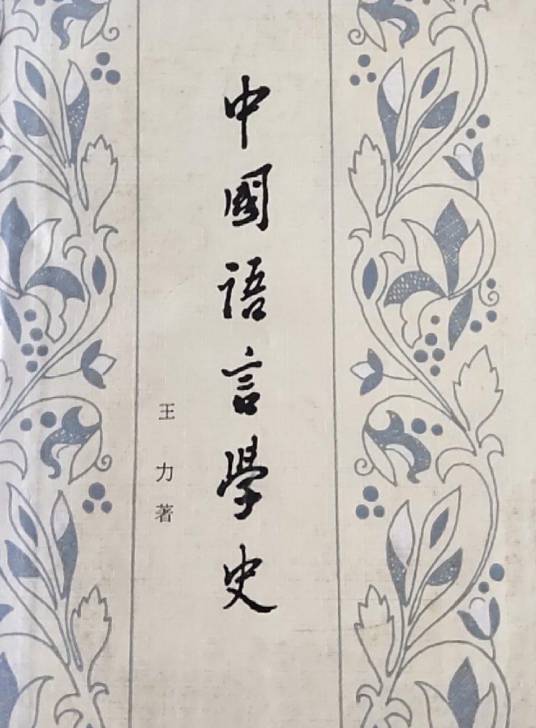 中國語言學史
王力著